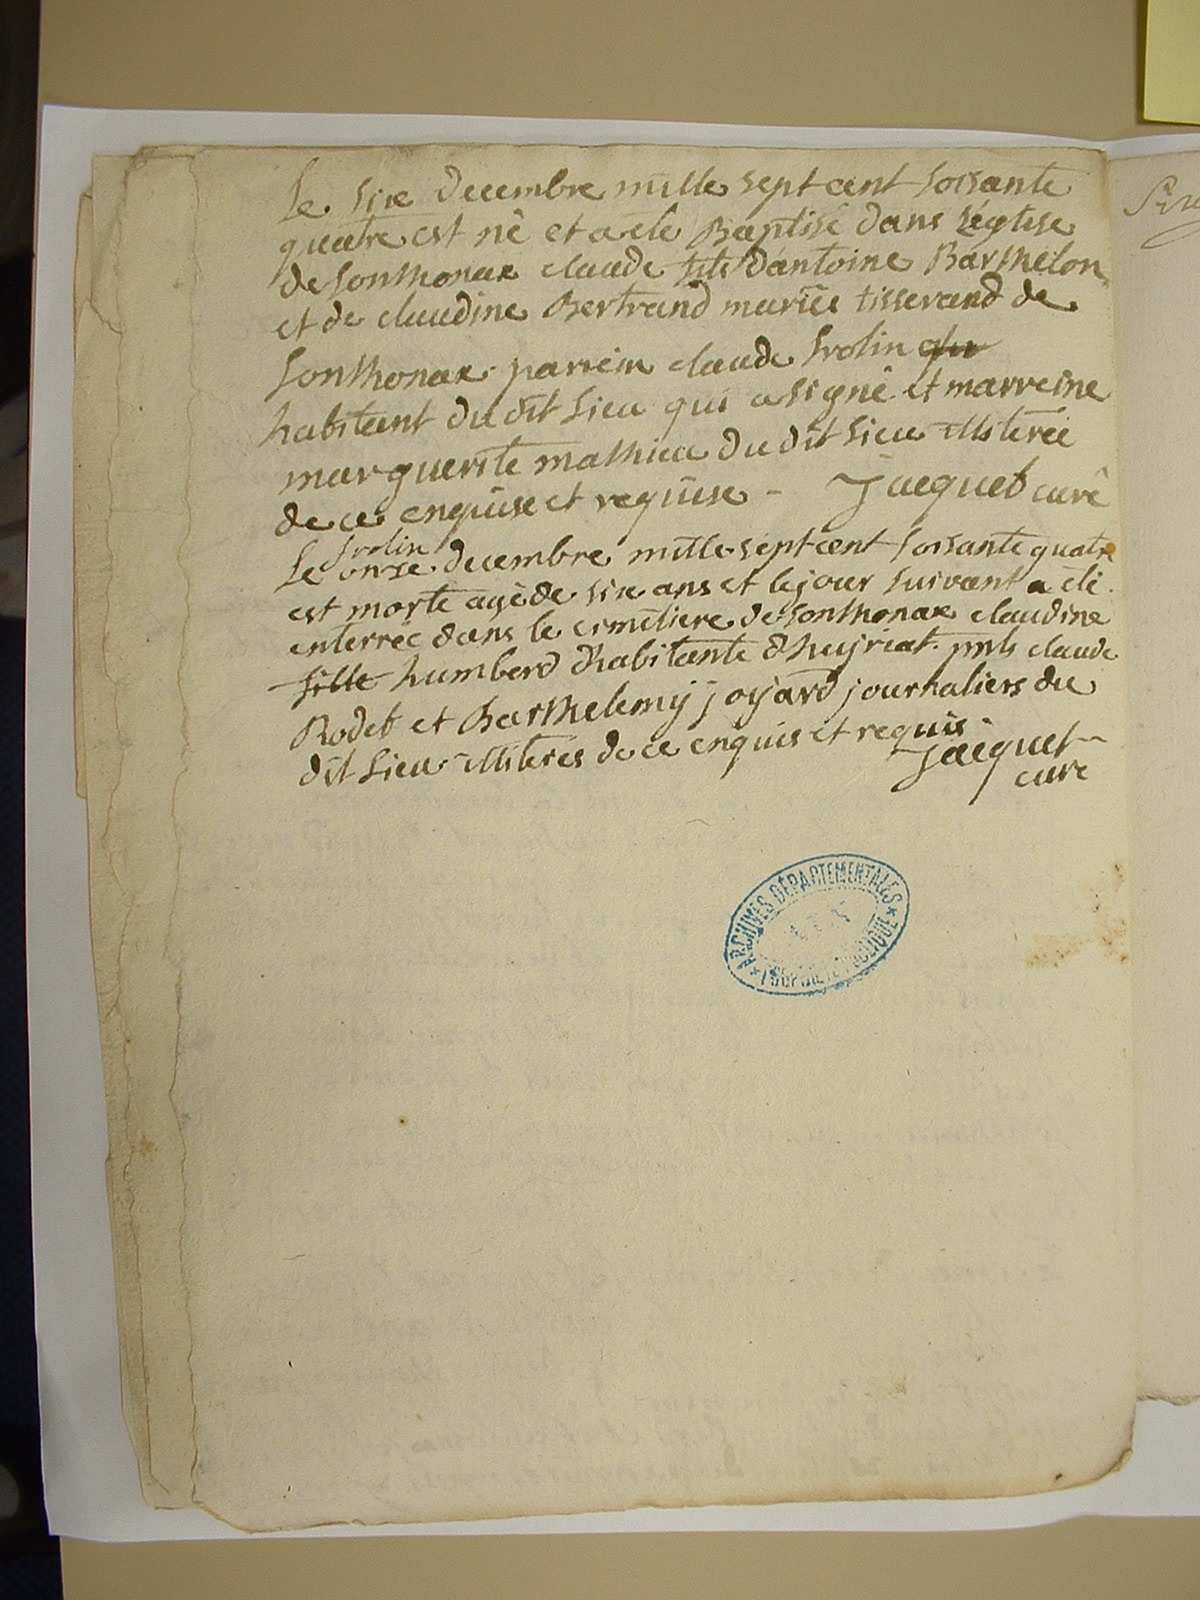 Le sixe decembre mille sept cent soisante
quatre est né et a eté Baptisé dans L'église
de sonthonax claude fils d'antoine Barthelon
et de claudine Bertrand mariés tisserand de
sonthonax. parrein claude Frolin qu
habitant du dit Lieu qui a signé et marreine
marguerite mathieu du dit Lieu illiterée
de ce enquise et requise - Jacquet curé
frolin
Le onze decembre mille sept cent soisante quatre
est morte agé de sixe ans et le jour suivant a été
enterrée dans le cimétiere de sonthonax claudine
fille humberd d'habitante d'heyriat. pnts claude
Rodet et Barthelemÿ joÿard journaliers du
dit Lieu illiteres de ce enquis et requis.
Jacquet
curé
ARCHIVES DÉPARTEMENTALES